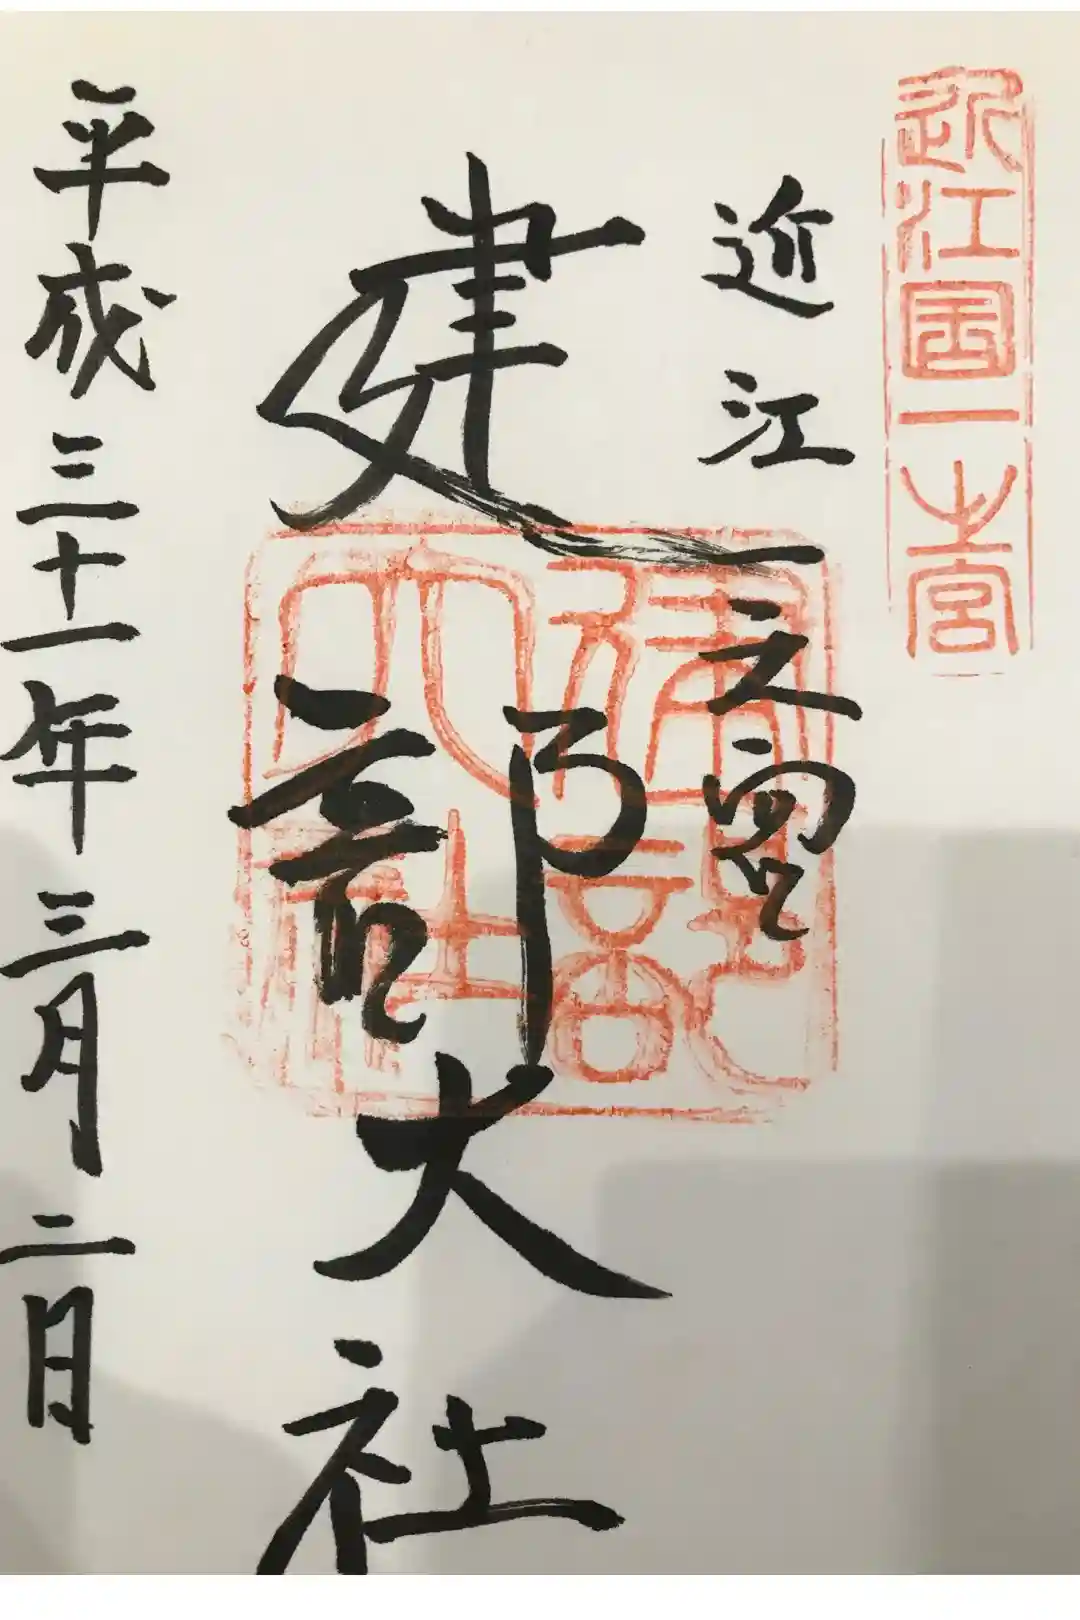 近江國一之宮
近江一之宮
建部大社
建部
大社
平成三十一年三月二日